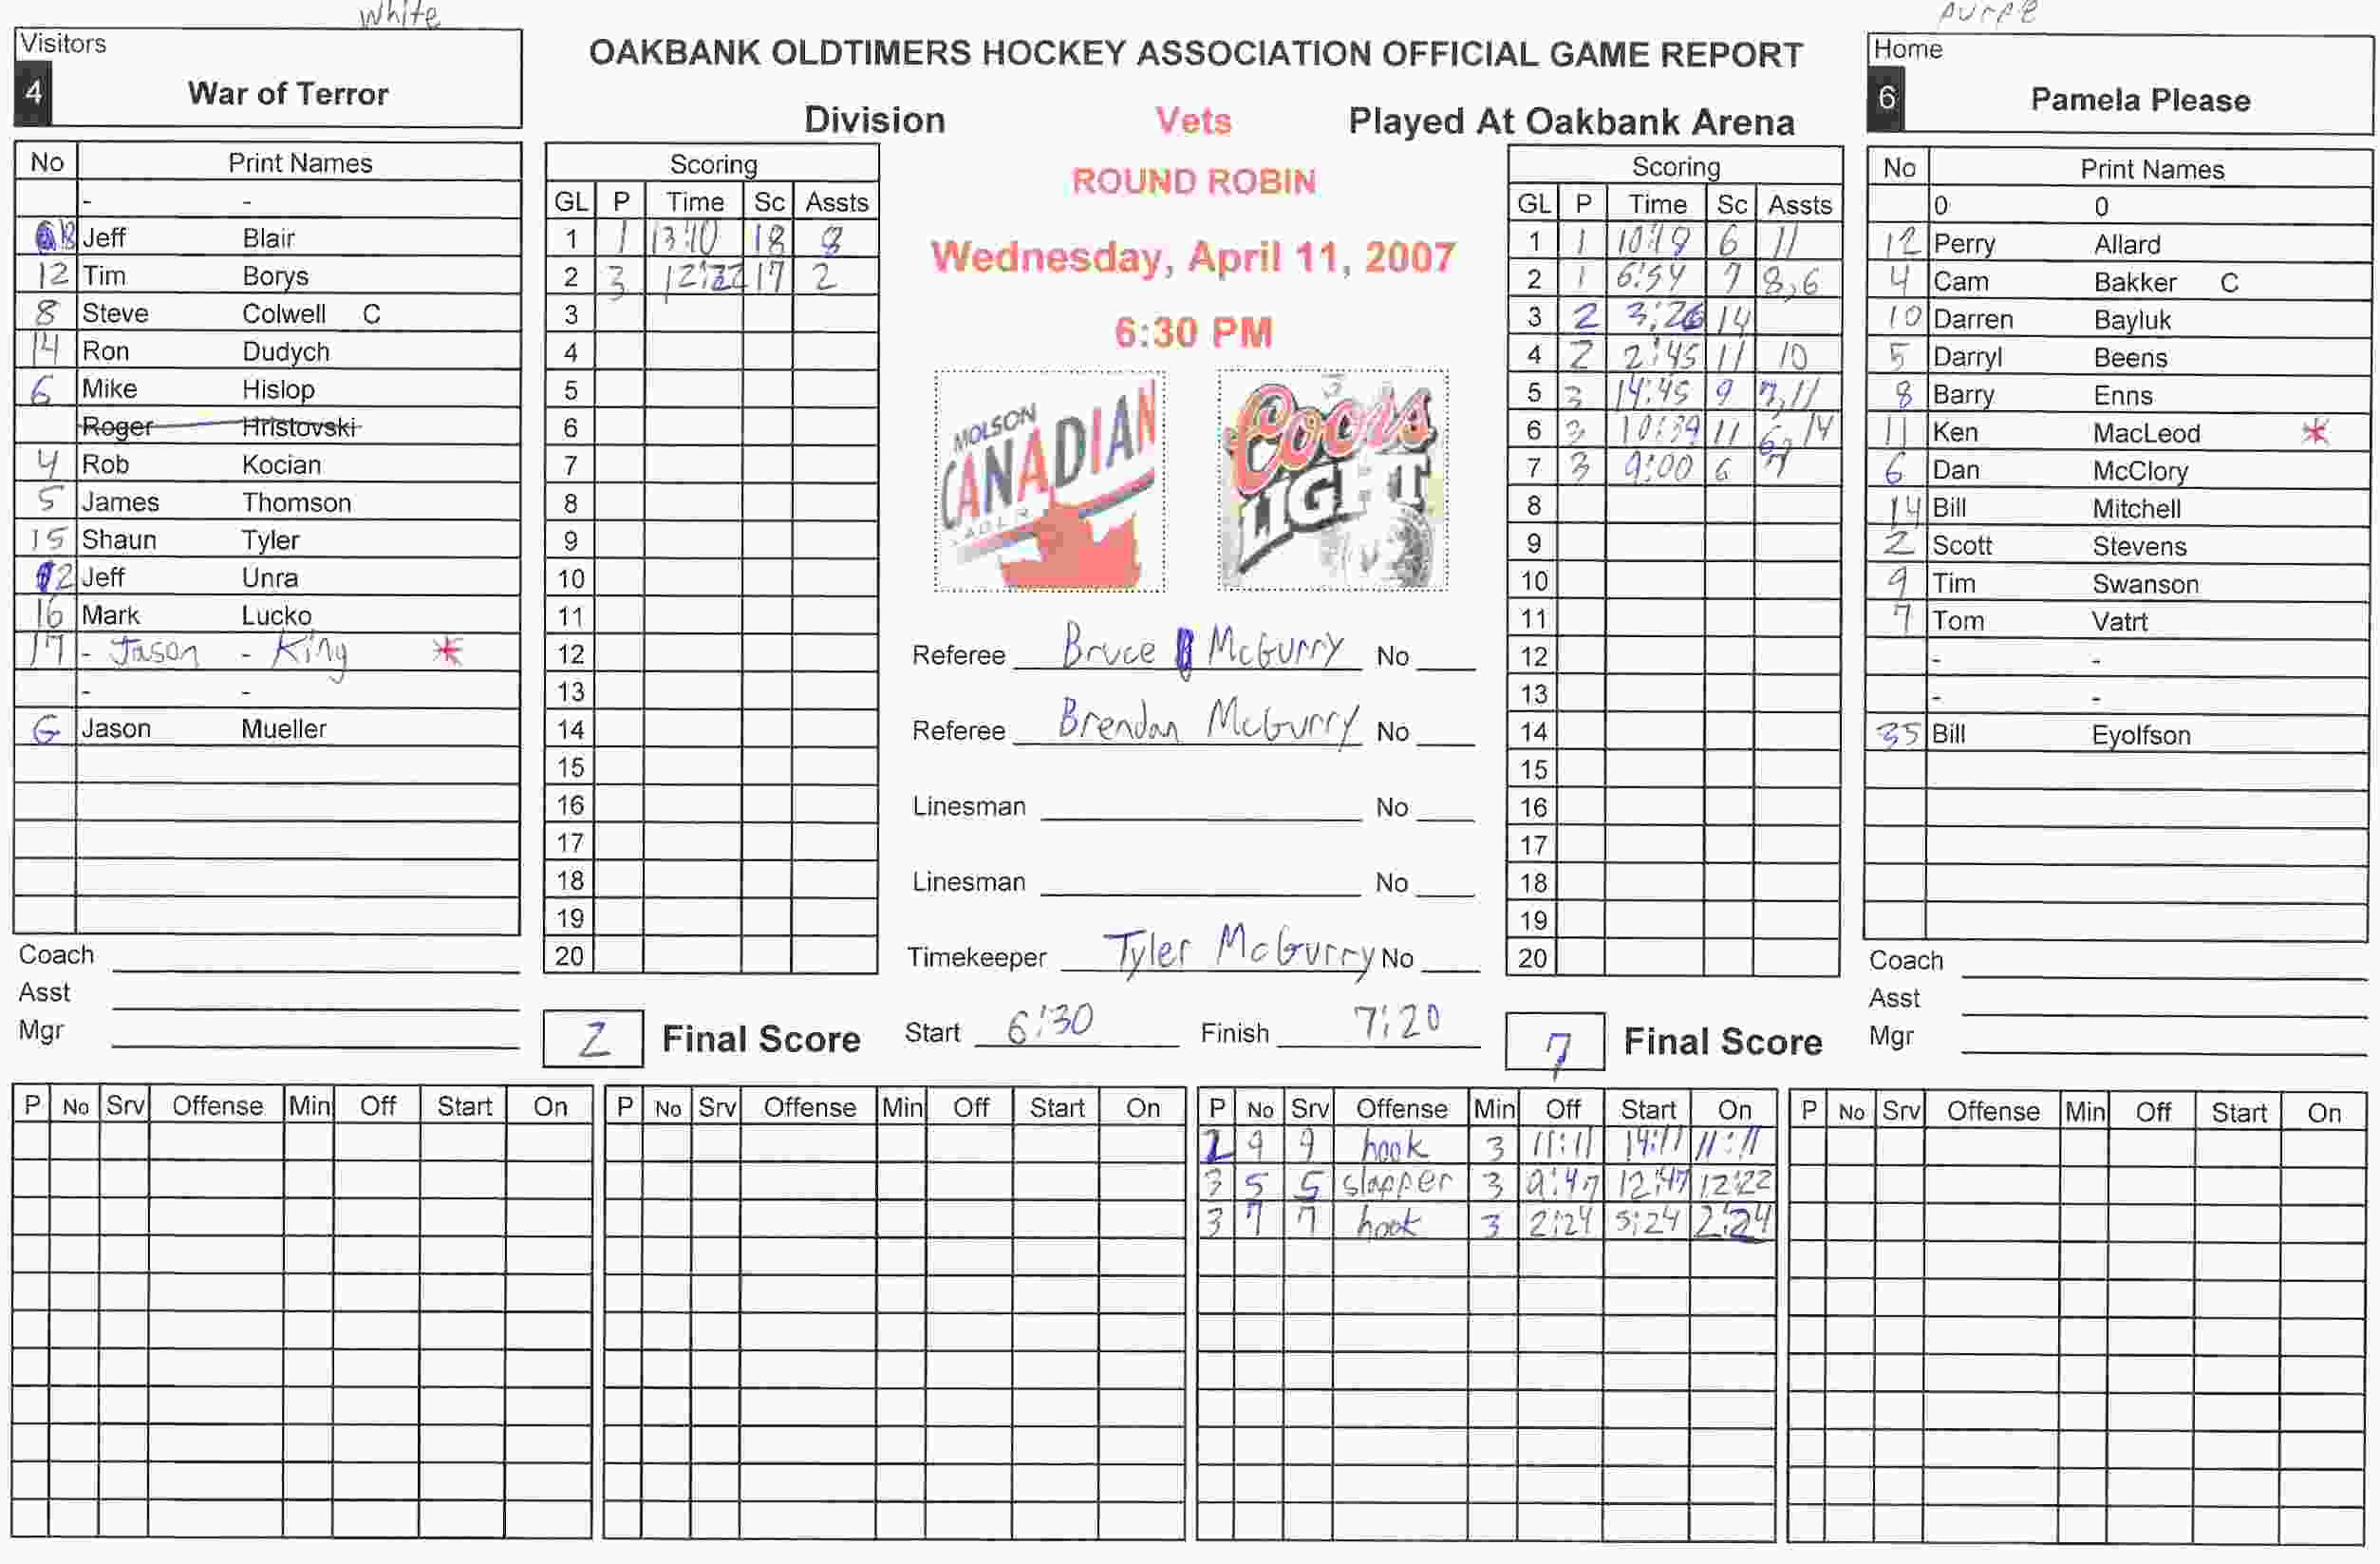 white
purple
Visitors
4 War of Terror
OAKBANK OLDTIMERS HOCKEY ASSOCIATION OFFICIAL GAME REPORT
Home
6 Pamela Please
Division Vets Played At Oakbank Arena
ROUND ROBIN
Wednesday, April 11, 2007
6:30 PM
No Print Names
- -
18 Jeff Blair
12 Tim Borys
8 Steve Colwell C
14 Ron Dudych
6 Mike Hislop
Roger Hristovski
4 Rob Kocian
5 James Thomson
15 Shaun Tyler
2 Jeff Unra
16 Mark Lucko
17 - Jason - King *
- -
G Jason Mueller
Coach
Asst
Mgr
Scoring
GL P Time Sc Assts
1 1 13:10 18 8
2 3 12:22 17 2
3
4
5
6
7
8
9
10
11
12
13
14
15
16
17
18
19
20
2 Final Score
MOLSON
CANADIAN
LAGER
Coors
LIGHT
Referee Bruce McGurry No
Referee Brendan McGurry No
Linesman No
Linesman No
Timekeeper Tyler McGurry No
Start 6:30 Finish 7:20
Scoring
GL P Time Sc Assts
1 1 10:19 6 11
2 1 6:54 7 8,6
3 2 3:26 14
4 2 2:45 11 10
5 3 14:45 9 7,11
6 3 10:39 11 6,14
7 3 9:00 6 7
8
9
10
11
12
13
14
15
16
17
18
19
20
7 Final Score
No Print Names
0 0
12 Perry Allard
4 Cam Bakker C
10 Darren Bayluk
5 Darryl Beens
8 Barry Enns
11 Ken MacLeod *
6 Dan McClory
14 Bill Mitchell
2 Scott Stevens
9 Tim Swanson
7 Tom Vatrt
- -
- -
35 Bill Eyolfson
Coach
Asst
Mgr
P No Srv Offense Min Off Start On
P No Srv Offense Min Off Start On
P No Srv Offense Min Off Start On
2 9 9 hook 3 11:11 14:11 11:11
3 5 5 slapper 3 9:47 12:47 12:22
3 7 7 hook 3 2:24 5:24 2:24
P No Srv Offense Min Off Start On